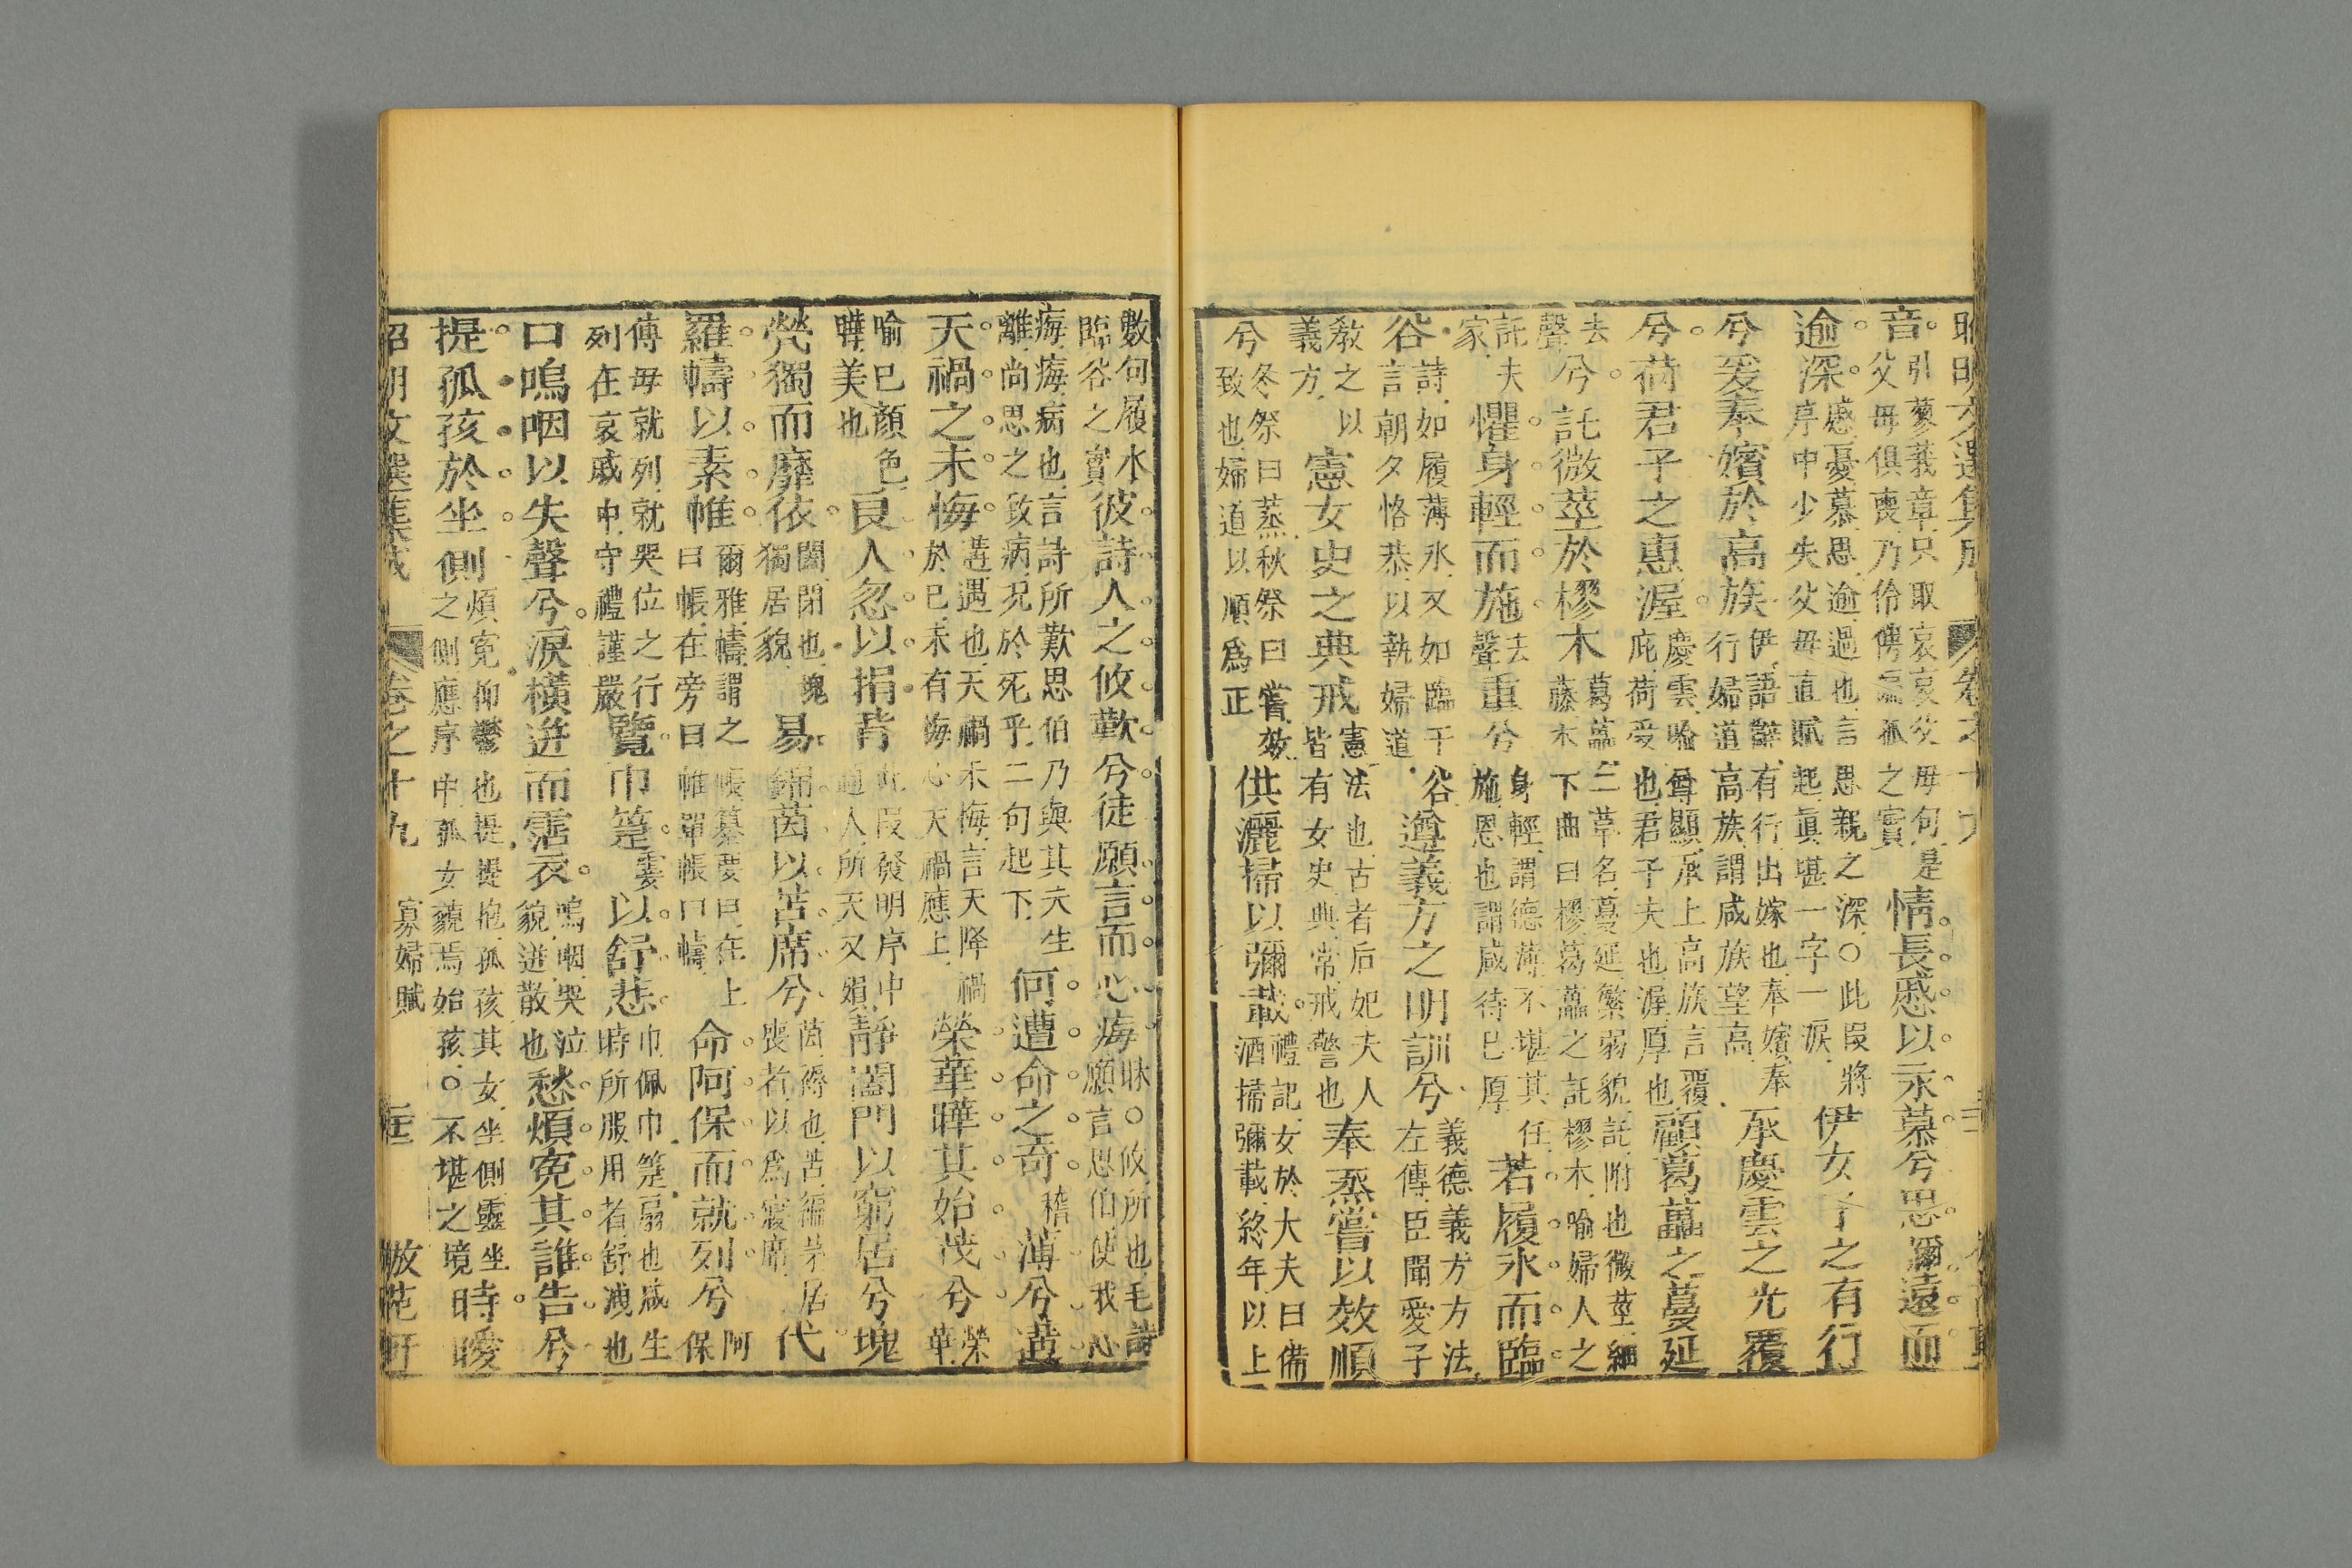 昭明文選集成 卷之十九
音。引蓼莪章只取哀哀父母句是父母俱喪乃伶俜孤之實情長慼以永慕兮思彌遠而
逾深。慼憂慕思逾過也言思親之深○此段將序中少失父母直賦起眞堪一字一淚伊女子之有行
兮爰奉嬪於高族伊語辭有行出嫁也奉嬪奉行婦道高族謂咸族望高承慶雲之光覆
兮荷君子之惠渥慶雲喻尊顯承上高族言覆庇荷受也君子夫也渥厚也顧葛藟之蔓延
去聲兮託微莖於樛木葛藟二草名蔓延繁弱貌託附也微莖細藤木下曲曰樛葛藟之託樛木喻婦人之
託夫家懼身輕而施去聲重兮身輕謂德薄不堪其任施恩也謂咸待已厚若履氷而臨
谷詩如履薄氷又如臨于谷言朝夕恪恭以執婦道遵義方之明訓兮義德義方方法左傳臣聞愛子
教之以義方憲女史之典戒憲法也古者后妃夫人皆有女史典常戒警也奉蒸嘗以效順
兮冬祭曰蒸秋祭曰嘗效致也婦道以順爲正供灑掃以彌載禮記女於大夫曰備酒掃彌載終年以上
數句履水臨谷之實彼詩人之攸歎兮徒願言而心痗昧○攸所也毛詩願言思伯使我心
痗痗病也言詩所歎思伯乃與其夫生離尚思之致病况於死乎二句起下何遭命之奇薄兮遘
天禍之未悔遘遇也天禍未悔言天降禍於已未有悔心天禍應上榮華曄其始茂兮榮華
喻已顏色曄美也良人忽以捐背此段發明序中適人所天又殞靜闔門以窮居兮塊
煢獨而靡依闔閉也塊獨居貌易錦茵以苫席兮茵褥也苫編茅居喪者以爲寢席代
羅幬以素帷爾雅幬謂之帳纂要曰在上曰帳在旁曰帷單帳曰幬命阿保而就列兮阿保
傅母就列就哭位之行列在哀戚中守禮謹嚴覽巾箑霎以舒悲巾佩巾箑扇也咸生時所服用者舒洩也
口嗚咽以失聲兮淚橫迸而霑衣。嗚咽哭泣貌迸散也愁煩寃其誰告兮
提孤孩於坐側煩寃抑鬱也提提抱孤孩其女坐側靈坐之側應序中孤女藐焉始孩○不堪之境時曖
昭明文選集成 卷之十九 寡婦賦